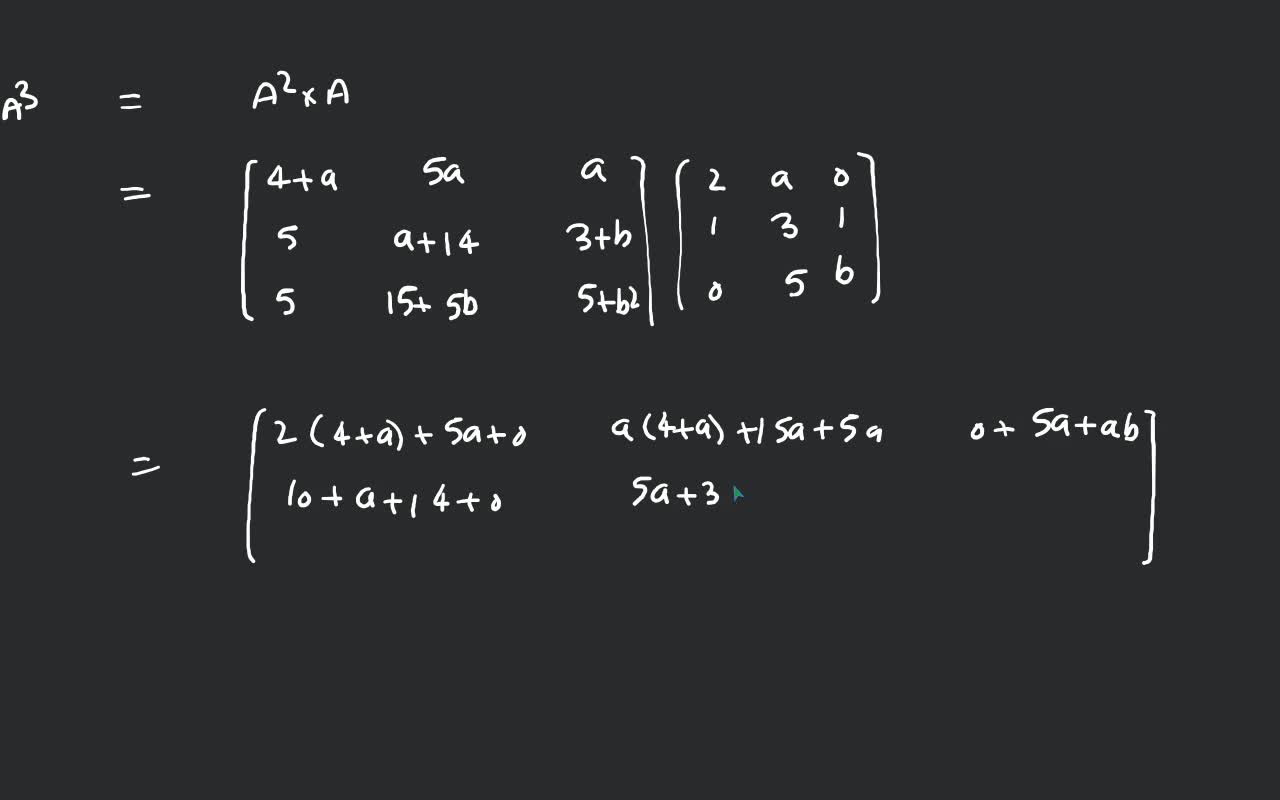 A³ = A² × A
= [ 4+a 5a a ] [ 2 a 0 ]
5 a+14 3+b 1 3 1
5 15+ 5b 5+b² 0 5 b
= [ 2(4+a)+5a+0 a(4+a)+15a+5a 0+ 5a+ab ]
10+a+14+0 5a+3